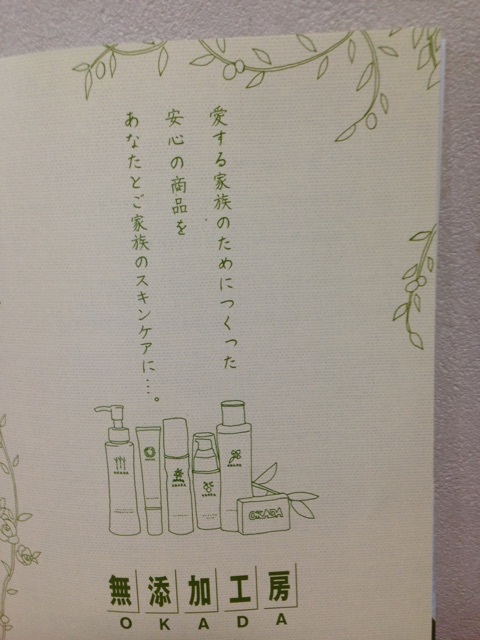 愛する家族のためにつくった
安心の商品を
あなたとご家族のスキンケアに…。
OKADA
無添加工房
OKADA